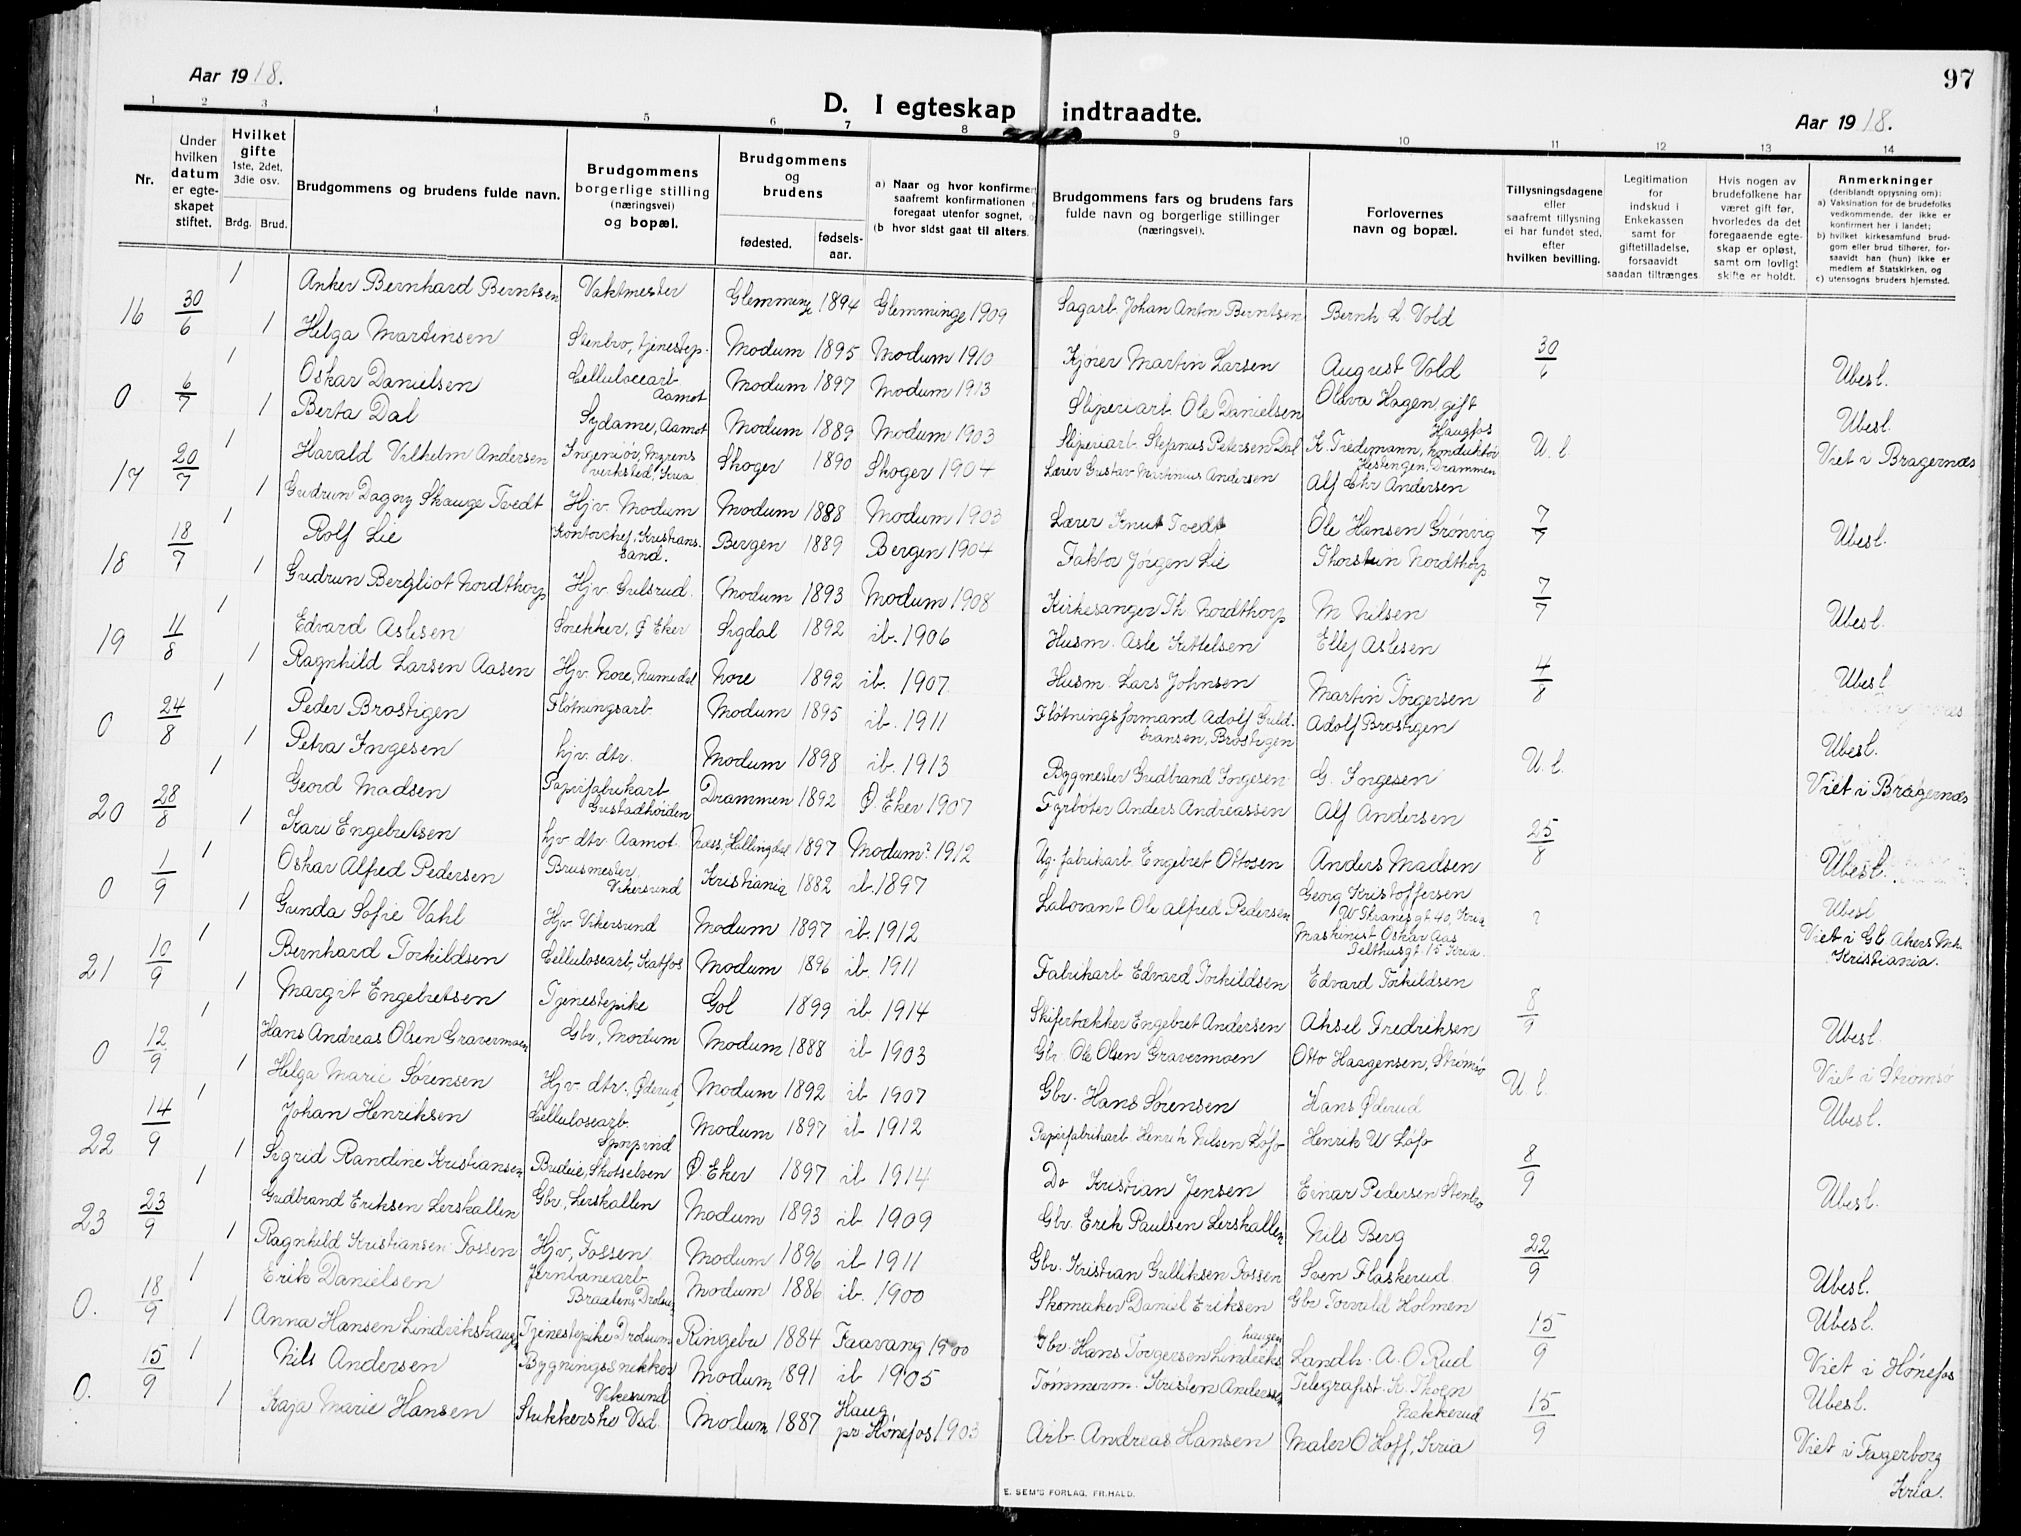 Aar 1918.
97
D. I egteskap indtraadte.
Aar 1918.
1 2 3 4 5 6 7 8 9 10 11 12 13 14
Nr.
Under hvilken datum er egte- skapet stiftet.
Hvilket gifte 1ste, 2det, 3die osv.
Brdg. Brud.
Brudgommens og brudens fulde navn.
Brudgommens borgerlige stilling (næringsvei) og bopæl.
Brudgommens og brudens
fødested. fødsels- aar.
a) Naar og hvor konfirmer saafremt konfirmationen foregaat utenfor sognet, o
(b hvor sidst gaat til alters.
Brudgommens fars og brudens fars fulde navn og borgerlige stillinger (næringsvei).
Forlovernes navn og bopæl.
Tillysningsdagene eller saafremt tillysning ei har fundet sted, efter hvilken bevilling.
Legitimation for indskud i Enkekassen samt for giftetilladelse, forsaavidt saadan tiltrænges.
Hvis nogen av brudefolkene har været gift før, hvorledes da det foregaaende egte- skap er opløst, samt om lovligt skifte er holdt.
Anmerkninger (deriblandt opjysning om): a) Vaksination for de brudefolks vedkommende, der ikke er konfirmert her i landet; b) hvilket kirkesamfund brud- gom eller brud tilhører, for- saavidt han (hun) ikke er medlem af Statskirken, og c) utensogns bruders hjemsted.
16 30/6 1 Anker Bernhard Berntsen Vaktmester Glemminge 1894 Glemminge 1909 Sagarb. Johan Anton Berntsen Bernh L. Vold
1 Helga Martinsen Stenbro, tjenestep. Modum 1895 Modum 1910 Kjører Martin Larsen August Vold 30/6 Ubesl.
0 6/7 1 Oskar Danielsen Celluloсearb. Aamot Modum 1897 Modum 1913 Sliperiarb. Ole Danielsen Olava Hagen, gift Haugfos Ubesl.
1 Berta Dal Sydame, Aamot Modum 1889 Modum 1903 Sliperiarb. Stefanus Petersen Dal K. Tredemann, konduktør Hestengen, Drammen U. l. Viet i Bragernæs
17 20/7 1 Harald Vilhelm Andersen Ingeniør, Myrens verksted, Kria Skoger 1890 Skoger 1904 Lærer Gustav Martinius Andersen Alf Chr Andersen
1 Gudrun Dagny Skauge Tvedt Hjv. Modum Modum 1888 Modum 1903 Lærer Knut Tvedt Ole Hansen Grønvig 7/7 Ubesl.
18 18/7 1 Rolf Lie Kontorchef, Kristians- sand. Bergen 1889 Bergen 1904 Faktor Jørgen Lie Thorstein Nordthorp
1 Gudrun Bergliot Nordthorp Hjv. Gulsrud. Modum 1893 Modum 1908 Kirkesanger Th. Nordthorp M Nilsen 7/7 Ubesl.
19 11/8 1 Edvard Aslesen Snekker, Ø Eker Sigdal 1892 ib. 1906 Husm. Asle Kittelsen Ellef Aslesen
1 Ragnhild Larsen Aasen Hjv. Nore, Numedal Nore 1892 ib. 1907 Husm. Lars Johnsen Martin Torgersen 4/8 Ubesl
0 24/8 1 Peder Brostigen Fløtningsarb. Modum 1895 ib. 1911 Fløtningsformand Adolf Guld- bransen, Brostigen Adolf Brostigen
1 Petra Ingesen hjv. dtr. Modum 1898 ib. 1913 Bygmester Gudbrand Ingesen G. Ingesen U. l. Ubesl. Viet i Bragernæs
20 28/8 1 Geord Madsen Papirfabrikarb Gustadhøiden Drammen 1892 Ø. Eker 1907 Fyrbøter Anders Andreassen Alf Andersen
1 Kari Engebretsen hjv dtr Aamot. Næss, Hallingdal 1897 Modum? 1912 Ug. fabrikarb. Engebret Ottosen Anders Madsen 25/8 Ubesl.
0 1/9 1 Oskar Alfred Pedersen Brusmester, Vikersund Kristiania 1882 ib. 1897 Laborant Ole Alfred Pedersen Georg Kristoffersen W. Thranes gt 40, Kria Ubesl
1 Gunda Sofie Vahl Hjv. Vikersund Modum 1897 ib. 1912 Maskinist Oskar Aas Telthusgt 15 Kria. ? Viet i Gl. Akers Kristiania.
21 10/9 1 Bernhard Torkildsen Cellulosearb, Katfos Modum 1896 ib. 1911 Fabrikarb Edvard Torkildsen Edvard Torkildsen
1 Margit Engebretsen Tjenestepike Gol 1899 ib. 1914 Skifertækker Engebret Andersen Aksel Fredriksen 8/9 Ubesl.
0 12/9 1 Hans Andreas Olsen Gravermoen Gbr, Modum Modum 1888 ib 1903 Gbr. Ole Olsen Gravermoen Otto Haagensen, Strømsø Viet i Strømsø
1 Helga Marie Sørensen Hjv. dtr. Øderud, Modum 1892 ib 1907 Gbr. Hans Sørensen Hans Øderud U. l. Ubesl.
22 14/9 1 Johan Henriksen Cellulosearb. Modum 1897 ib 1912 Papirfabrikarb. Henrik Nilsen Løfo Henrik W Løfo
1 Sigrid Randine Kristiansen Budeie, Skotselven Ø Eker 1897 ib 1914 Do Kristian Jensen Einar Pedersen Stenbro 8/9 Ubesl.
23 23/9 1 Gudbrand Eriksen Lerskallen Gbr., Lerskallen Modum 1893 ib 1909 Gbr. Erik Paulsen Lerskallen Nils Berg
1 Ragnhild Kristiansen Fossen Hjv, Fossen. Modum 1896 ib 1911 Gbr. Kristian Gulliksen Fossen Sven Flaskerud 22/9 Ubesl.
0. 18/9 1 Erik Danielsen Jernbanearb. Braaten, Modum 1886 ib. 1900 Skomaker Daniel Eriksen Gbr Torvald Holmen Ubesl.
1 Anna Hansen Lindrikshaugen Tjenestepike Ringebu 1884 Faavang 1900 Gbr. Hans Torgersen Lindriks- haugen Landh. A. O. Rud 15/9 Viet i Hønefos
0. 15/9 1 Nils Andersen Bygningssnekker Vikesund Modum 1891 ib 1905 Tømmerm. Kristen Andersen Telegrafist K. Thoen Nakkerud Ubesl.
1 Kaja Marie Hansen Strikkerske Vsd. Modum 1887 Haug pr Hønefos 1903 Arb. Andreas Hansen Maler O Hoff, Kria 15/9 Viet i Fagerborg Kria.
E. SEM'S FORLAG, FR.HALD.